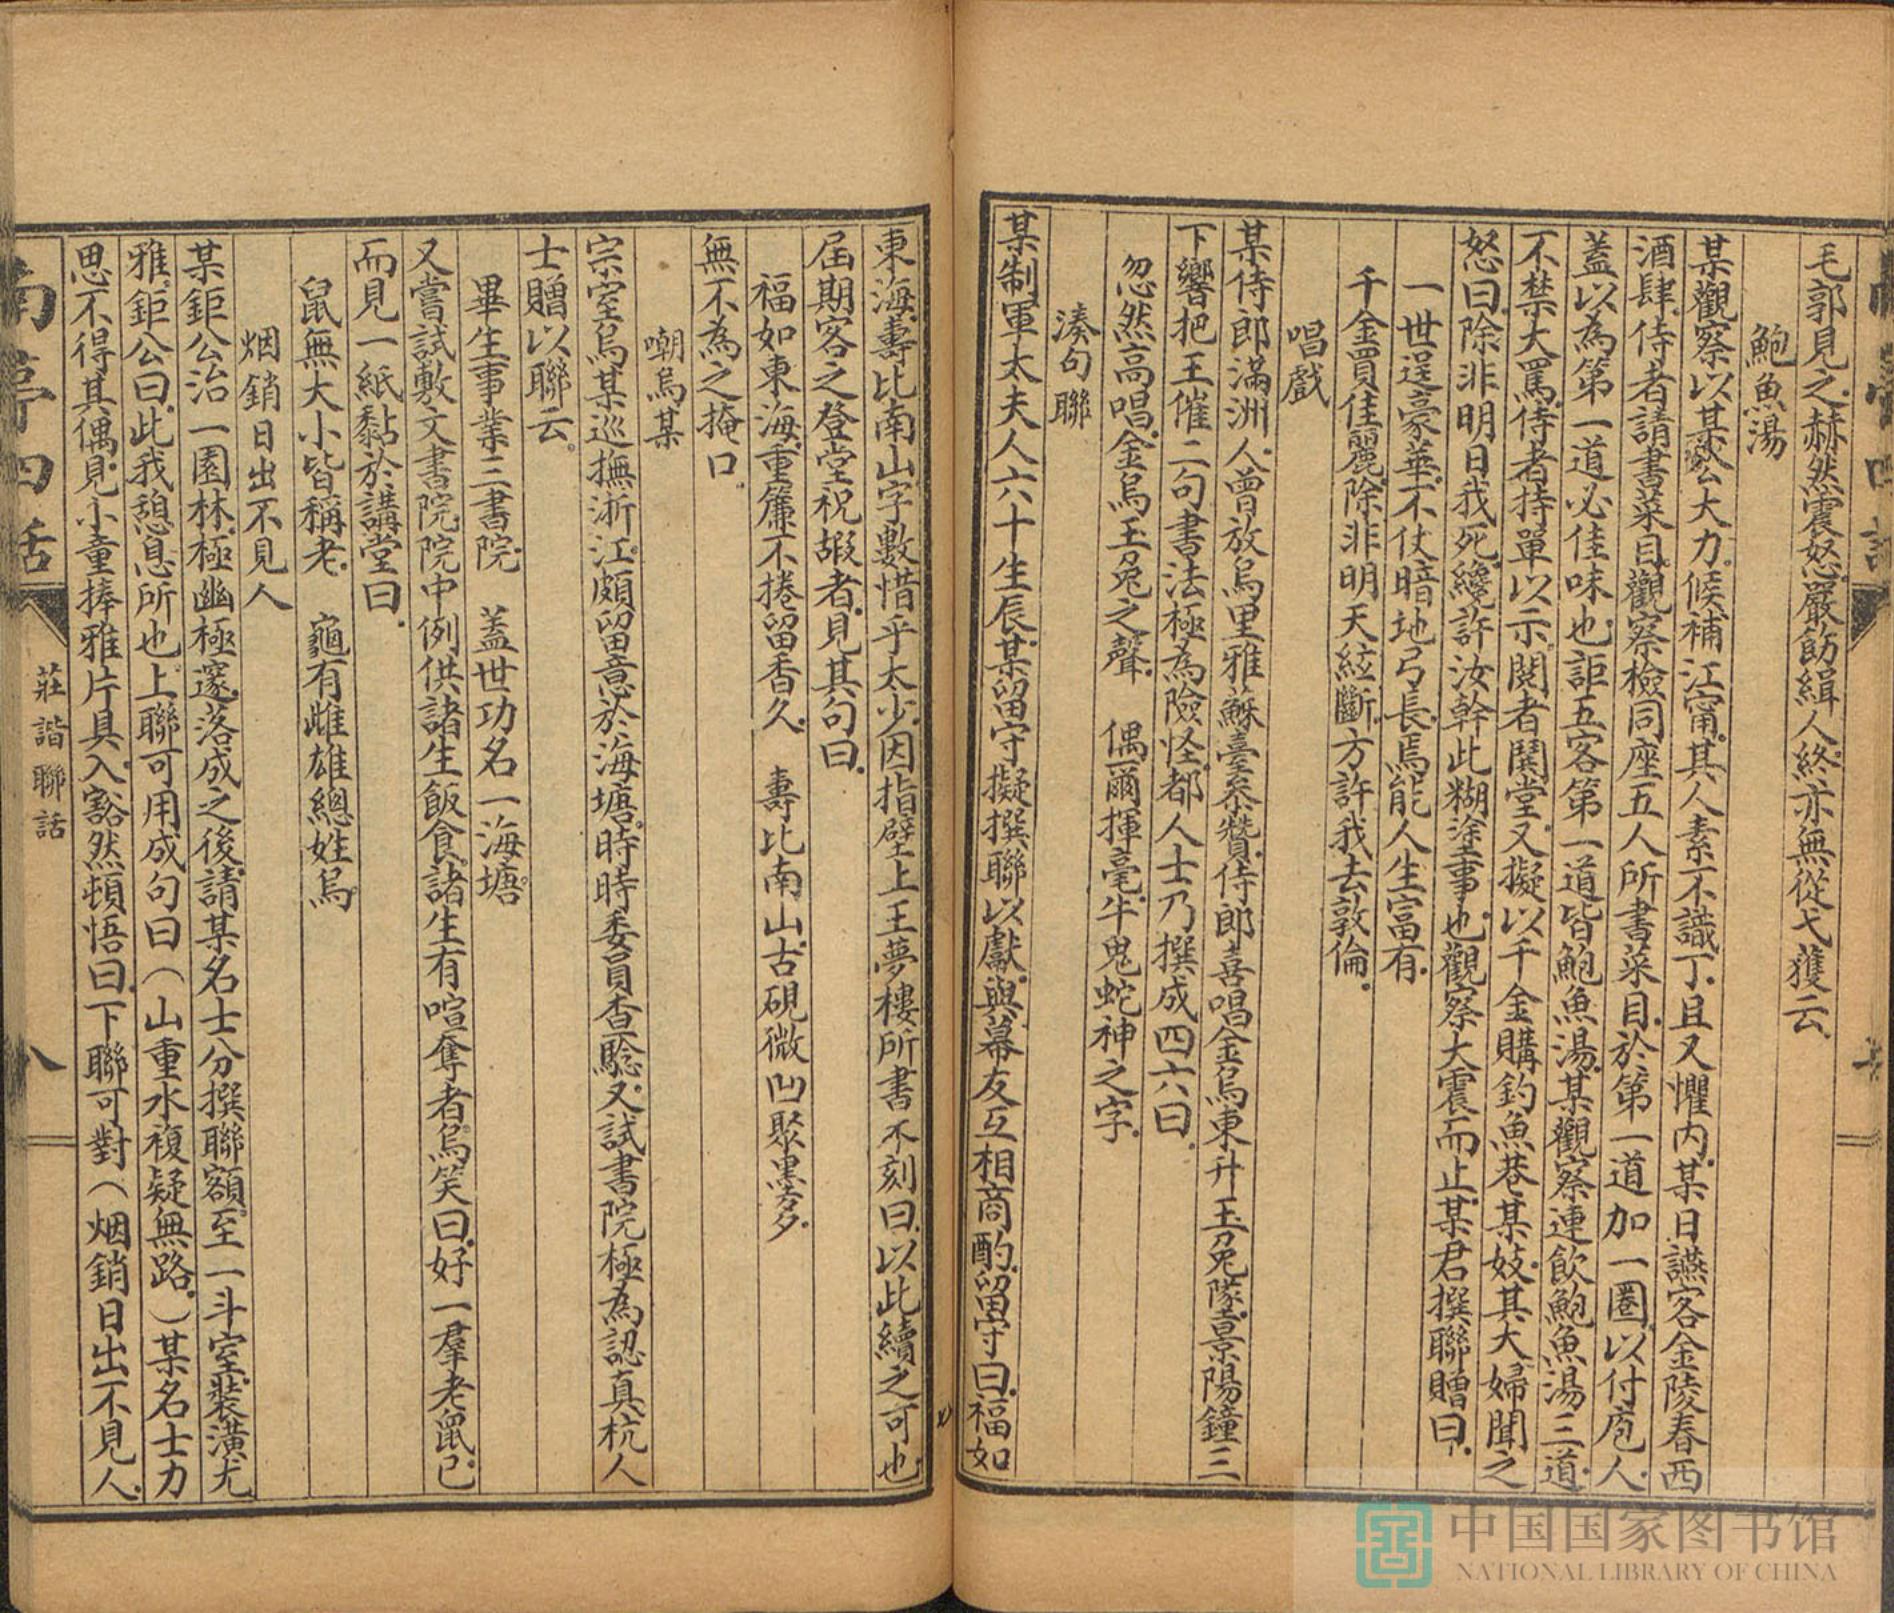 毛郭見之赫然震怒嚴飭緝人終亦無從弋獲云
鮑魚湯
某觀察以某公大力候補江甯其人素不識丁且又懼內某日讌客金陵春西
酒肆侍者請書菜目觀察檢同座五人所書菜目於第一道加一圈以付庖人
蓋以為第一道必佳味也詎五客第一道皆鮑魚湯某觀察連飲鮑魚湯三道
不禁大罵侍者持單以示閱者鬨堂又擬以千金購釣魚巷某妓其大婦聞之
怒曰除非明日我死纔許汝幹此糊塗事也觀察大震而止某君撰聯贈曰
一世逞豪華不仗暗地弓長焉能人生富有
千金買佳麗除非明天絃斷方許我去敦倫
唱戲
某侍郎滿洲人曾放烏里雅蘇臺叅贊侍郎喜唱金烏東升玉兔墜景陽鐘三
下響把王催二句書法極為險怪都人士乃撰成四六曰
忽然高唱金烏玉兔之聲 偶爾揮毫牛鬼蛇神之字
湊句聯
某制軍太夫人六十生辰某留守擬撰聯以獻與幕友互相商酌留守曰福如
東海壽比南山字數惜乎太少因指壁上王夢樓所書不刻曰以此續之可也
屆期客之登堂祝嘏者見其句曰
福如東海重簾不捲留香久 壽比南山古硯微凹聚墨多
無不為之掩口
嘲烏某
宗室烏某巡撫浙江頗留意於海塘時時委員查騐又試書院極為認真杭人
士贈以聯云
畢生事業三書院 蓋世功名一海塘
又嘗試敷文書院院中例供諸生飯食諸生有喧奪者烏笑曰好一羣老鼠已
而見一紙黏於講堂曰
鼠無大小皆稱老 龜有雌雄總姓烏
烟銷日出不見人
某鉅公治一園林極幽極邃落成之後請某名士分撰聯額至一斗室裝潢尤
雅鉅公曰此我憩息所也上聯可用成句曰（山重水複疑無路）某名士力
思不得其偶見小童捧雅片具入豁然頓悟曰下聯可對（烟銷日出不見人
南亭四話
莊諧聯話
八
中国国家图书馆
NATIONAL LIBRARY OF CHINA